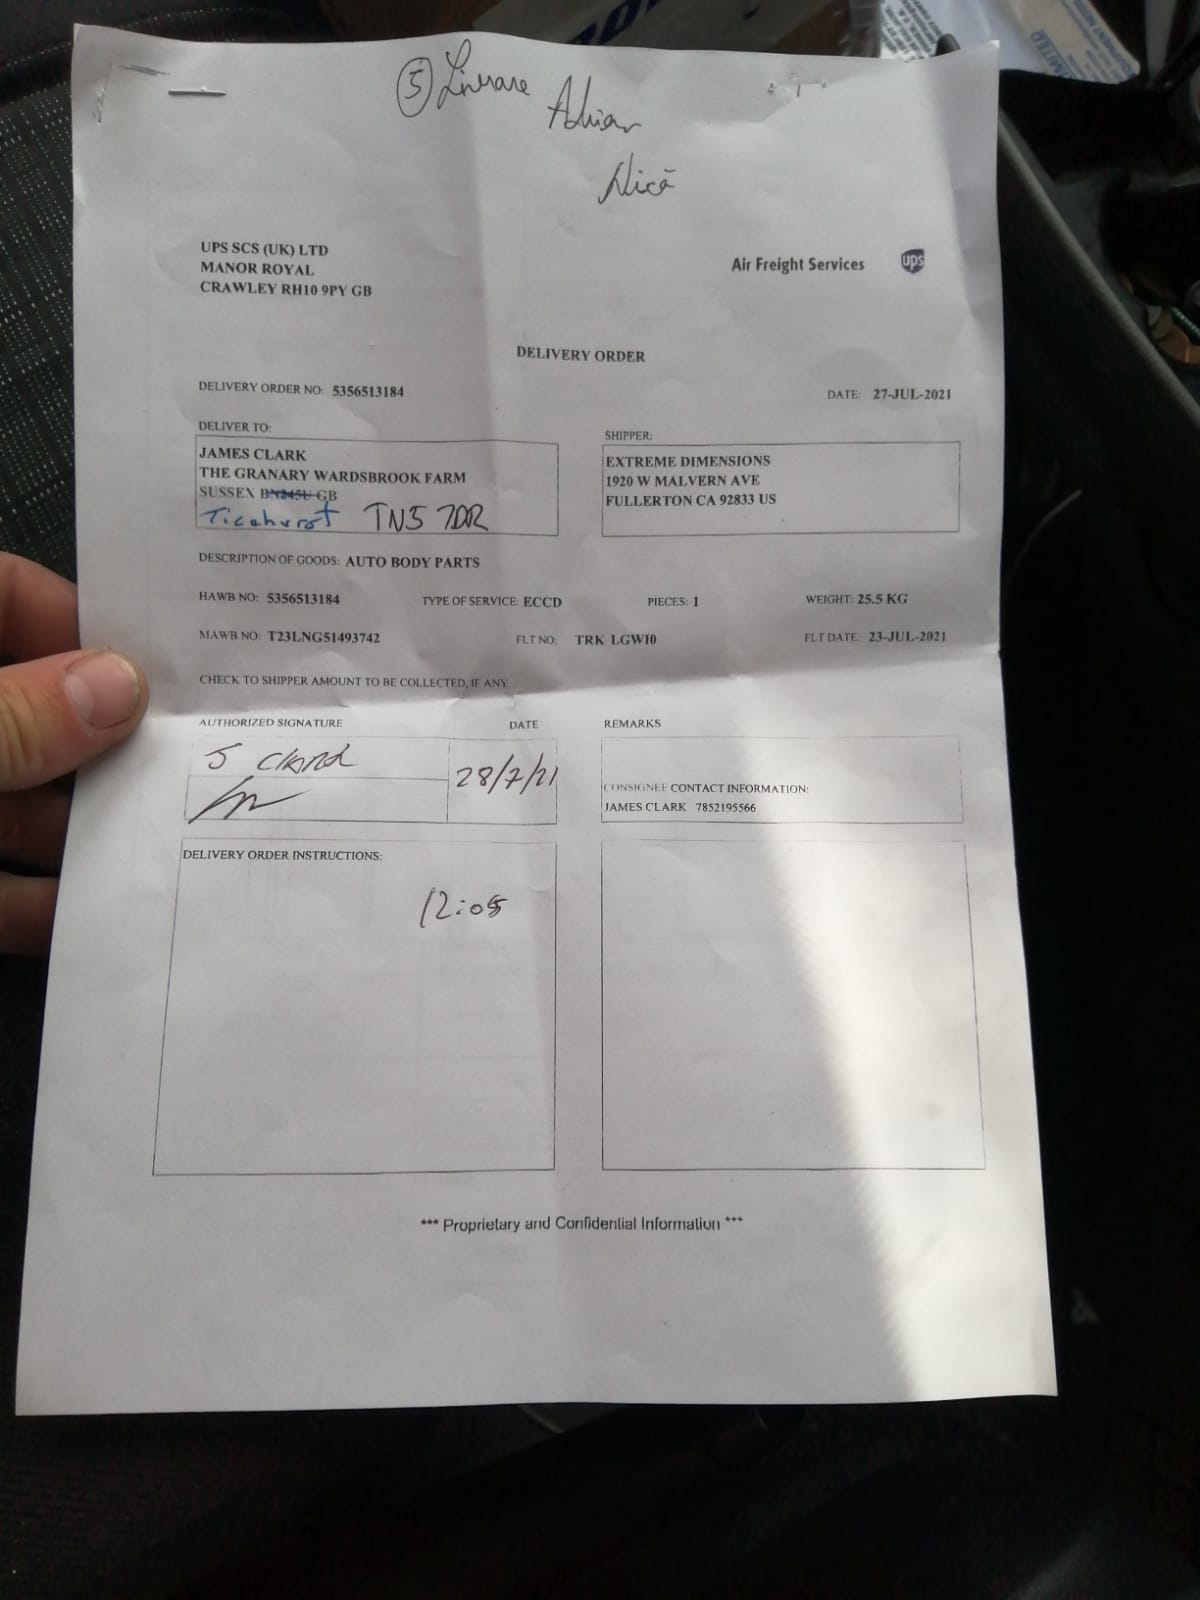 5 Livrare
Adrian
Nică
UPS SCS (UK) LTD
MANOR ROYAL
CRAWLEY RH10 9PY GB
Air Freight Services ups
DELIVERY ORDER
DELIVERY ORDER NO: 5356513184
DATE: 27-JUL-2021
DELIVER TO:
JAMES CLARK
THE GRANARY WARDSBROOK FARM
SUSSEX BN245U GB
Ticehurst TN5 7DR
SHIPPER:
EXTREME DIMENSIONS
1920 W MALVERN AVE
FULLERTON CA 92833 US
DESCRIPTION OF GOODS: AUTO BODY PARTS
HAWB NO: 5356513184 TYPE OF SERVICE: ECCD PIECES: 1 WEIGHT: 25.5 KG
MAWB NO: T23LNG51493742 FLT NO: TRK LGW10 FLT DATE: 23-JUL-2021
CHECK TO SHIPPER AMOUNT TO BE COLLECTED, IF ANY
AUTHORIZED SIGNATURE DATE
J Clark
28/7/21
REMARKS
CONSIGNEE CONTACT INFORMATION:
JAMES CLARK 7852195566
DELIVERY ORDER INSTRUCTIONS:
12:05
*** Proprietary and Confidential Information ***